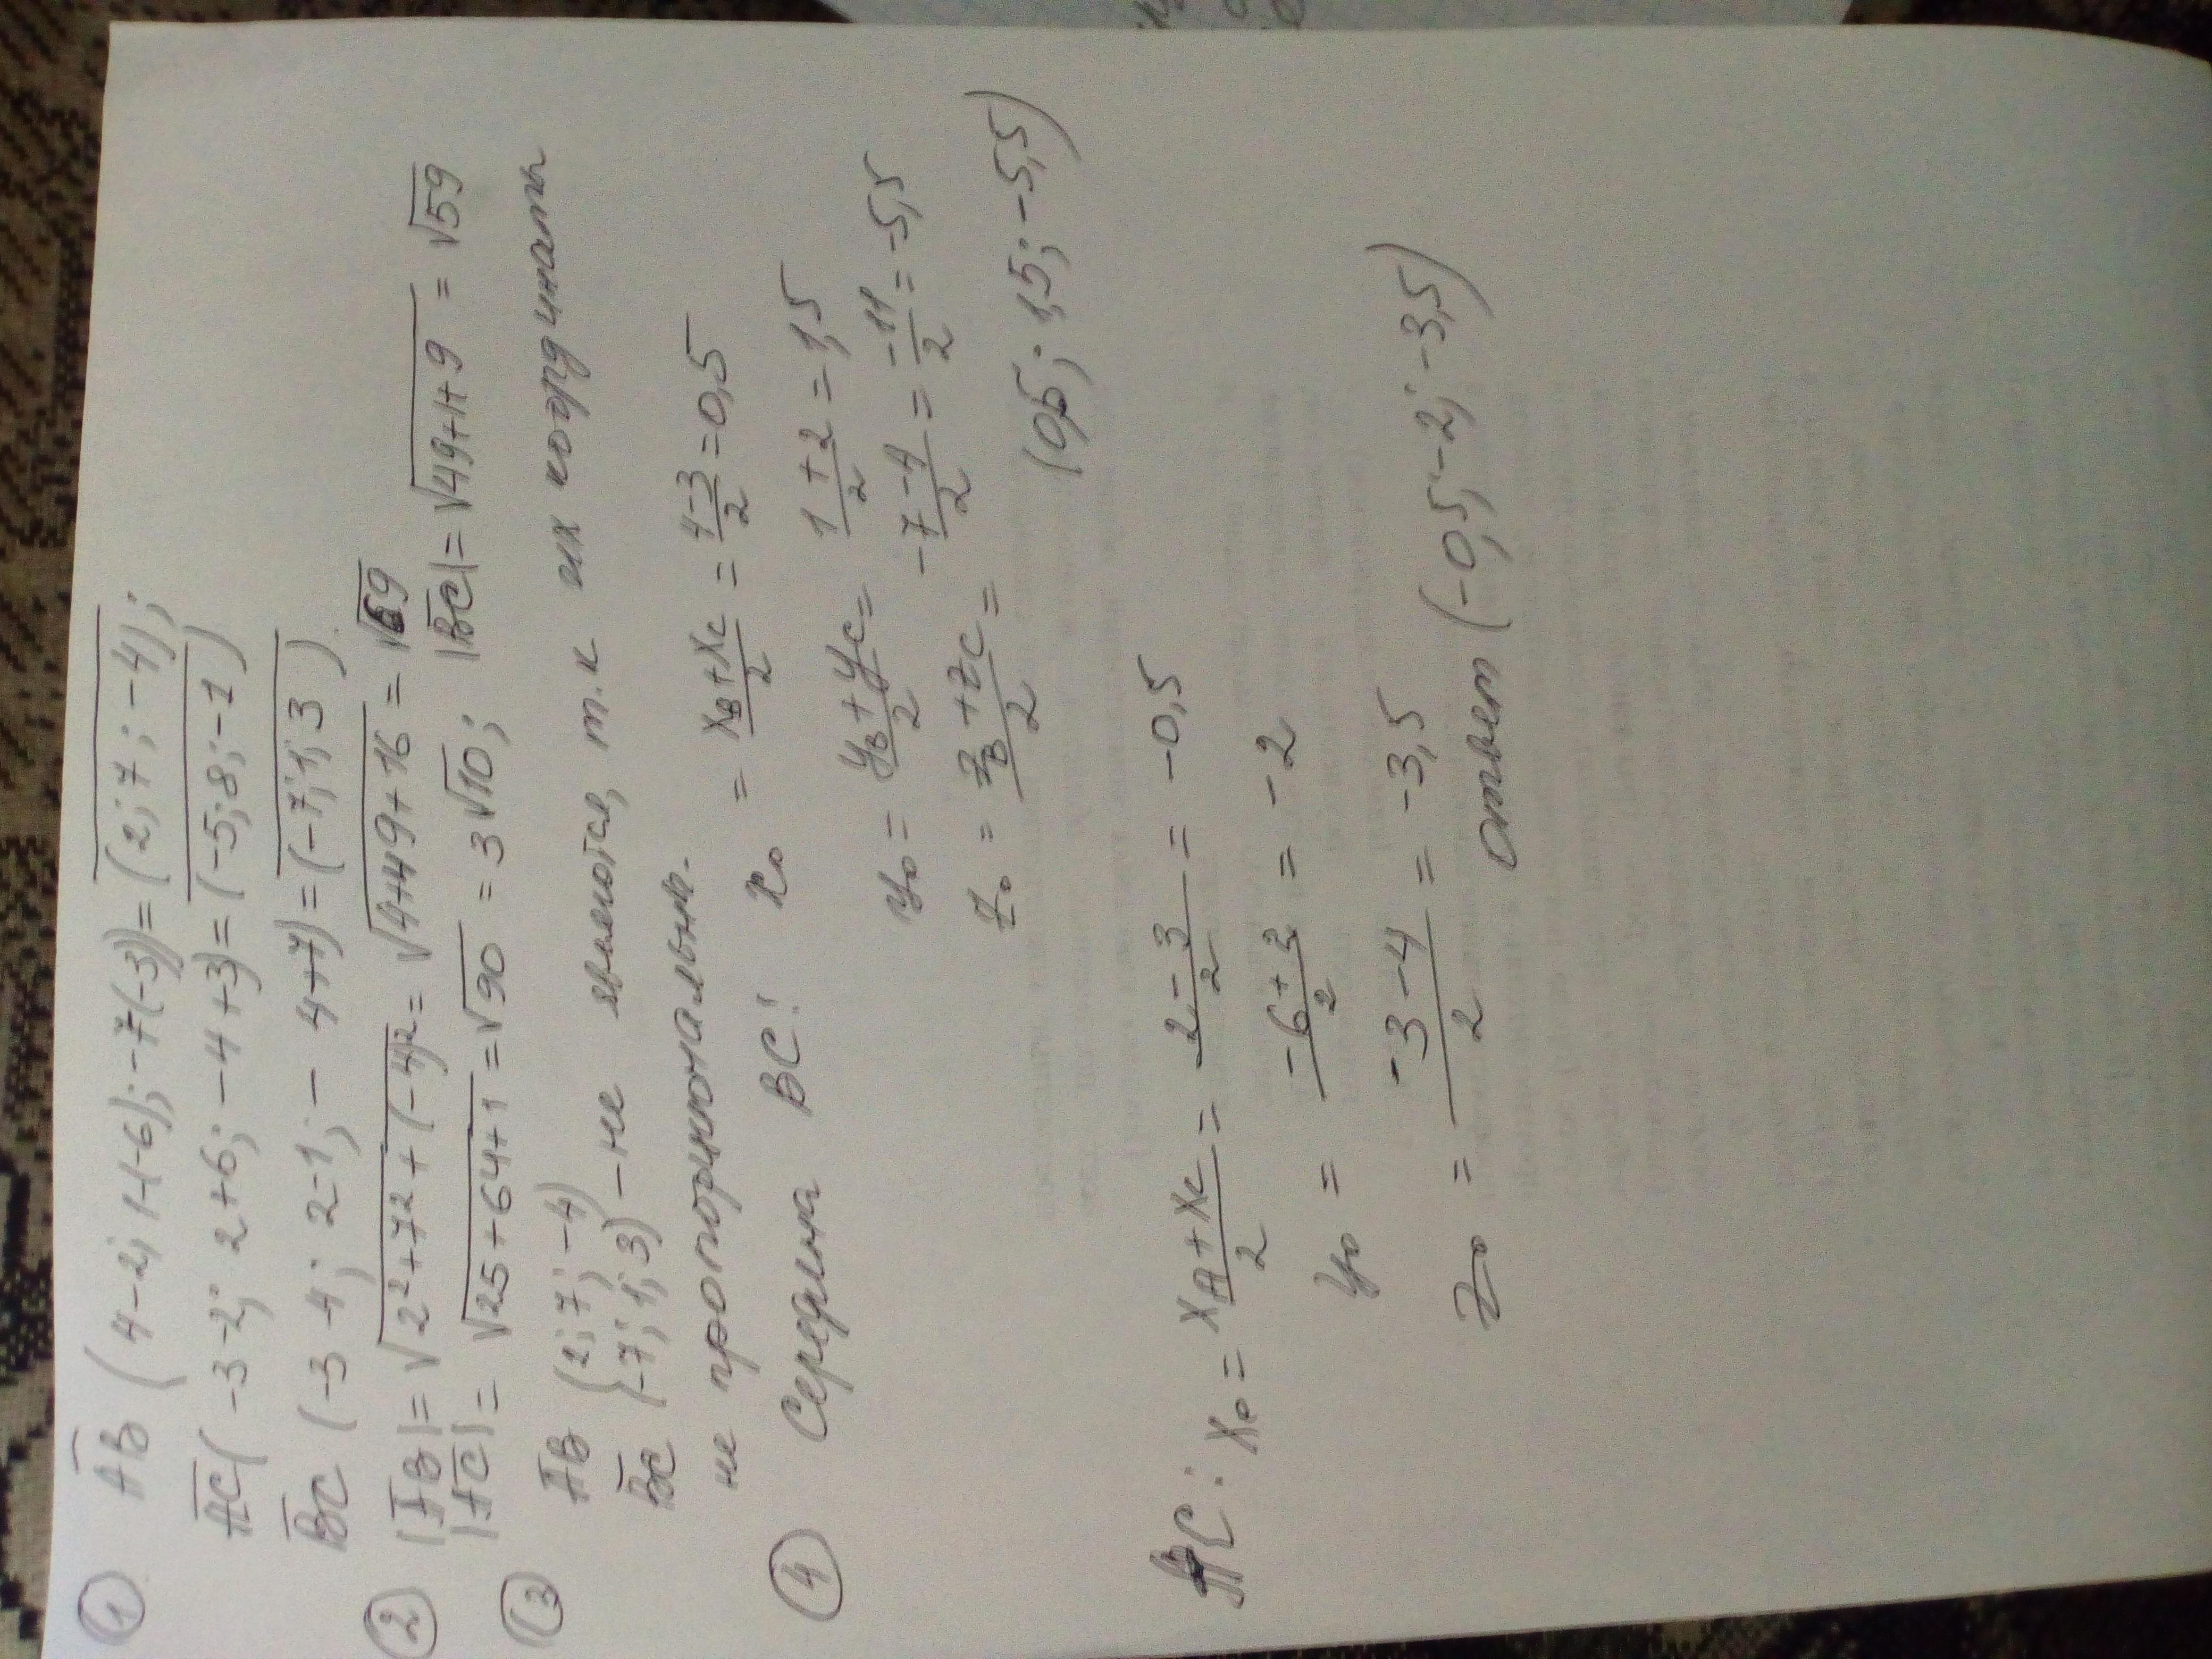 ① AB (4-2; 1-(-6); -7-(-3)) = (2; 7; -4);
AC (-3-2; 2+6; -4+3) = (-5; 8; -1)
BC (-3-4; 2-1; -4+7) = (-7; 1; 3)
② |AB| = √2²+7²+(-4)² = √4+49+16 = √69
|AC| = √25+64+1 = √90 = 3√10; |BC| = √49+1+9 = √59
③ AB (2; 7; -4)
BC (-7; 1; 3) - не являются, т.к их координаты
не пропорциональны.
④ Середина BC: x₀ = xB+xC/2 = 4-3/2 = 0,5
y₀ = yB+yC/2 = 1+2/2 = 1,5
z₀ = zB+zC/2 = -7-4/2 = -11/2 = -5,5
(0,5; 1,5; -5,5)
AC: x₀ = xA+xC/2 = 2-3/2 = -0,5
y₀ = -6+2/2 = -2
z₀ = -3-4/2 = -3,5
ответ (-0,5; -2; -3,5)